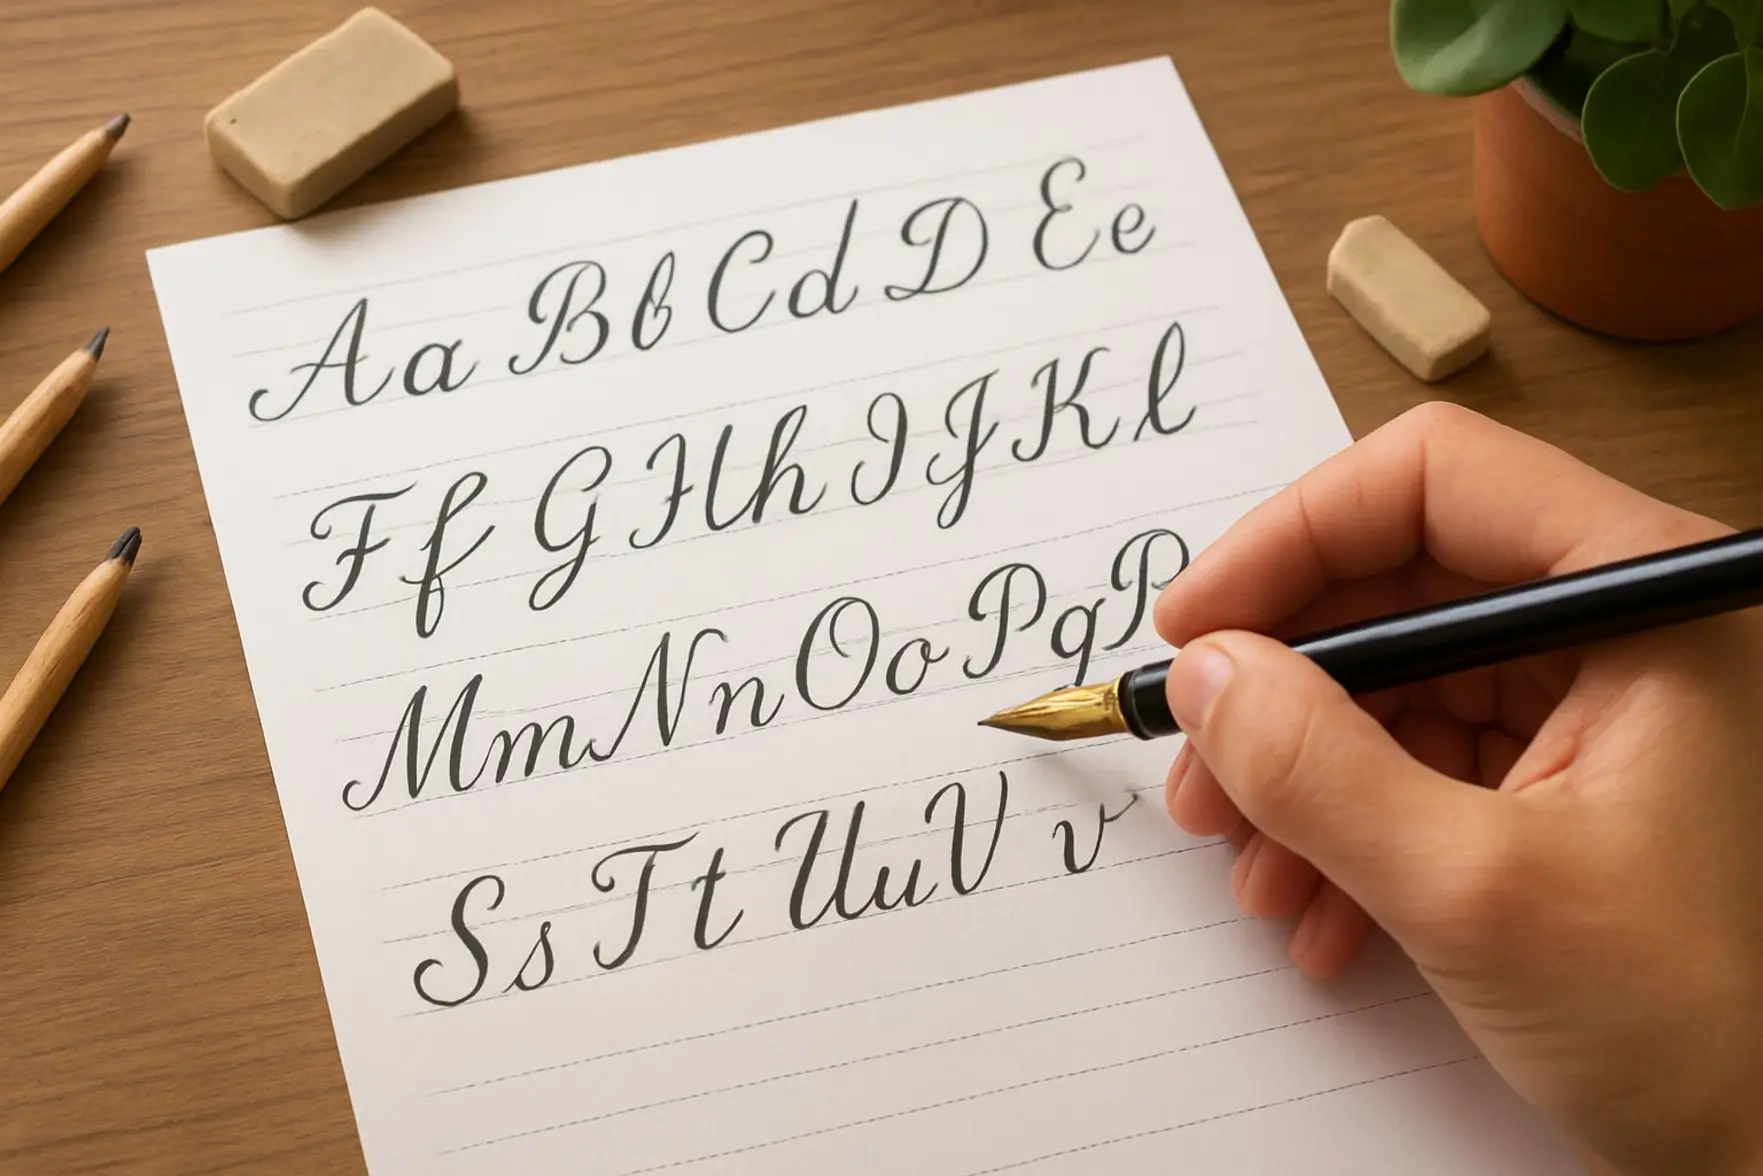 Aa Bb Cd D Ee
Ff G Hh I J K l
Mm Nn Oo P q P
Ss Tt Uu V v